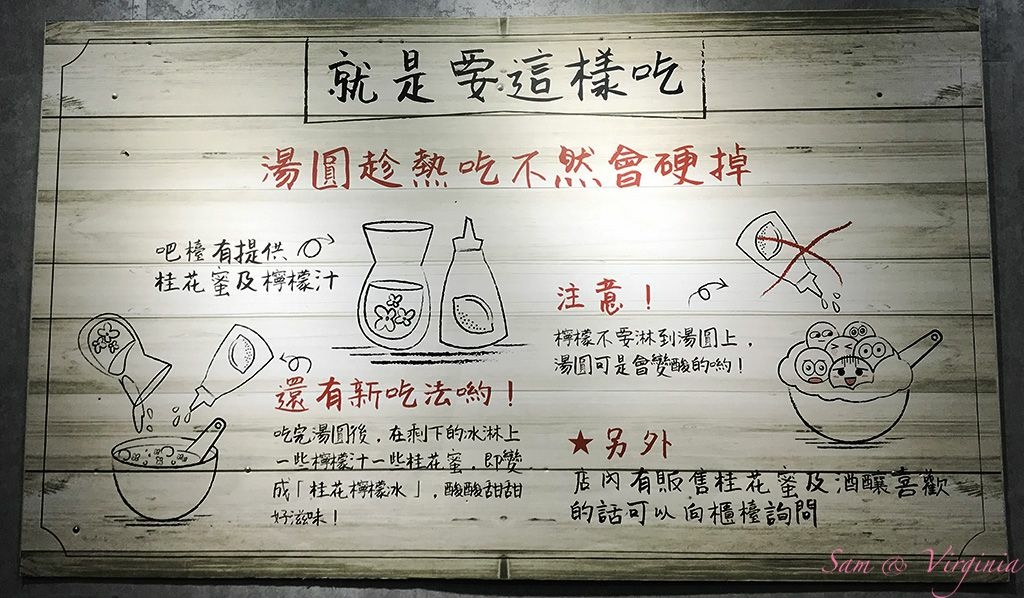 就是要這樣吃
湯圓趁熱吃不然會硬掉
吧檯有提供
桂花蜜及檸檬汁
還有新吃法喲！
吃完湯圓後，在剩下的冰淋上
一些檸檬汁一些桂花蜜，即變
成「桂花檸檬冰」，酸酸甜甜
好滋味！
注意！
檸檬不要淋到湯圓上，
湯圓可是會變酸的喲！
★另外
店內有販售桂花蜜及酒釀喜歡
的話可以向櫃檯詢問
Sam & Virginia